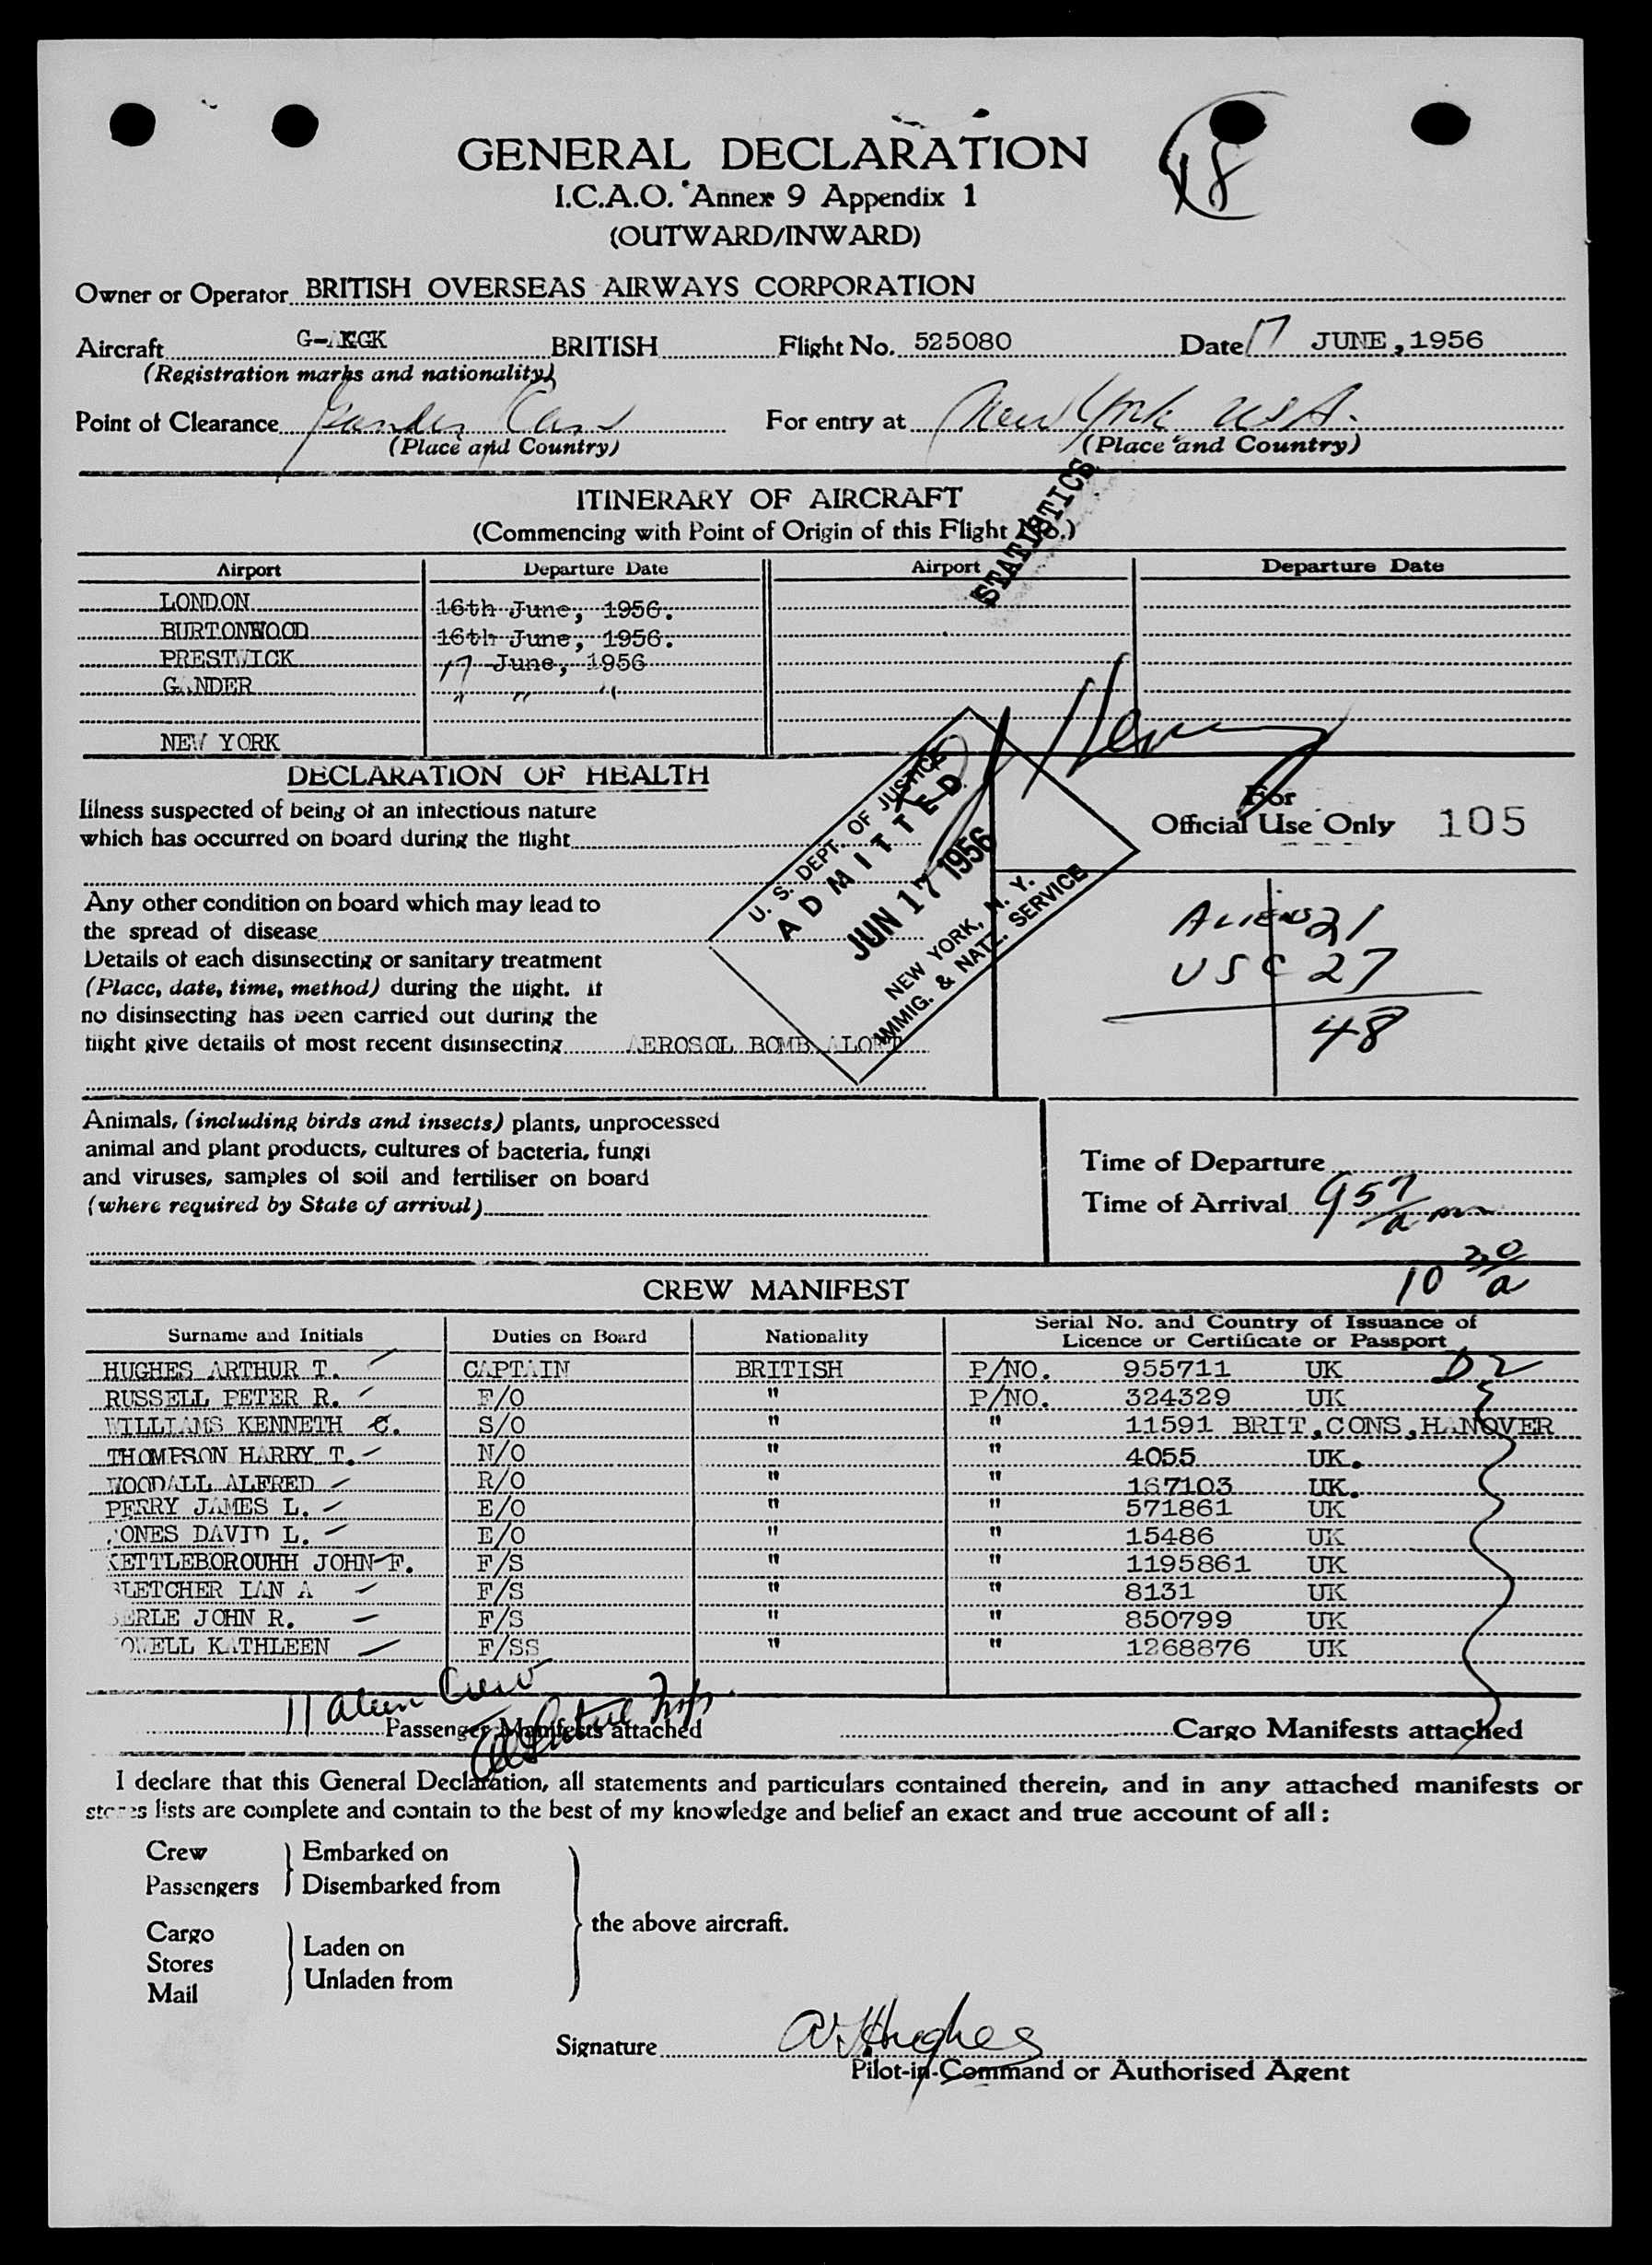 48
GENERAL DECLARATION
I.C.A.O. Annex 9 Appendix 1
(OUTWARD/INWARD)
Owner or Operator BRITISH OVERSEAS AIRWAYS CORPORATION
Aircraft BRITISH Flight No. 525080 Date 17 JUNE, 1956
(Registration marks and nationality)
Point of Clearance Gander Can For entry at New York USA.
(Place and Country) (Place and Country)
STATISTICS
ITINERARY OF AIRCRAFT
(Commencing with Point of Origin of this Flight No.)
Airport Departure Date Airport Departure Date
LONDON 16th June, 1956.
BURTONWOOD 16th June, 1956.
PRESTWICK 17 June, 1956
GANDER " " "
NEW YORK
DECLARATION OF HEALTH
Illness suspected of being of an infectious nature
which has occurred on board during the flight
For
Official Use Only 105
U. S. DEPT. OF JUSTICE
ADMITTED
JUN 17 1956
NEW YORK, N. Y.
IMMIG. & NATZ. SERVICE
Any other condition on board which may lead to
the spread of disease
Details of each disinsecting or sanitary treatment
(Place, date, time, method) during the flight. If
no disinsecting has been carried out during the
flight give details of most recent disinsecting AEROSOL BOMB ALOFT
ALIENS 21
USC 27
48
Animals, (including birds and insects) plants, unprocessed
animal and plant products, cultures of bacteria, fungi
and viruses, samples of soil and fertiliser on board
(where required by State of arrival)
Time of Departure
Time of Arrival 957 am
10 30/a
CREW MANIFEST
Surname and Initials Duties on Board Nationality Serial No. and Country of Issuance of
Licence or Certificate or Passport
HUGHES ARTHUR T. CAPTAIN BRITISH P/NO. 955711 UK D2
RUSSELL PETER R. F/O " P/NO. 324329 UK
WILLIAMS KENNETH C. S/O " " 11591 BRIT,CONS,HANOVER
THOMPSON HARRY T. N/O " " 4055 UK.
WOODALL ALFRED R/O " " 167103 UK.
PERRY JAMES L. E/O " " 571861 UK
JONES DAVID L. E/O " " 15486 UK
KETTLEBOROUHH JOHN F. F/S " " 1195861 UK
FLETCHER IAN A F/S " " 8131 UK
JOHN R. F/S " " 850799 UK
KATHLEEN F/SS " " 1268876 UK
11 alien Crew
Passenger Manifests attached Cargo Manifests attached
I declare that this General Declaration, all statements and particulars contained therein, and in any attached manifests or
stores lists are complete and contain to the best of my knowledge and belief an exact and true account of all:
Crew
Passengers
Embarked on
Disembarked from
Cargo
Stores
Mail
Laden on
Unladen from
the above aircraft.
Signature A T Hughes
Pilot-in-Command or Authorised Agent